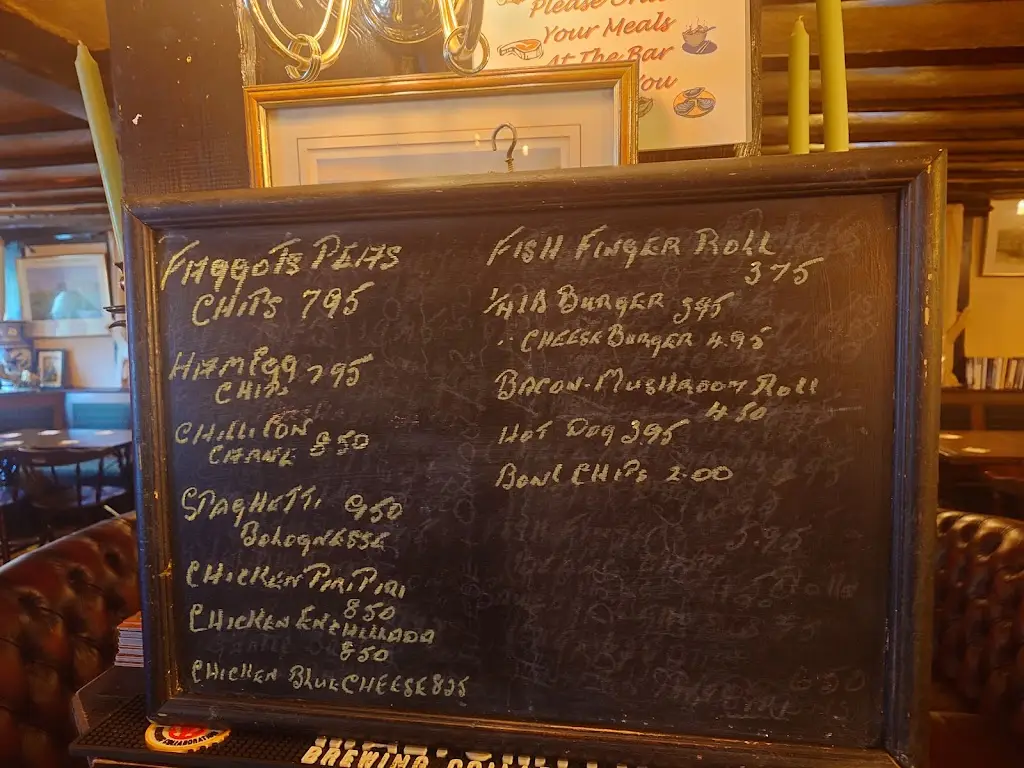 Your Meals
At The Bar
FAGGOTS PEAS
CHIPS 795
HAM EGG
CHIPS 795
CHILLI CON
CARNE 850
SPAGHETTI 950
BOLOGNESSE
CHICKEN PIRI PIRI
850
CHICKEN ENCHILLADA
850
CHICKEN BLUE CHEESE 825
FISH FINGER ROLL
375
1/4 LB BURGER 395
CHEESE BURGER 4.95
BACON-MUSHROOM ROLL
4.50
HOT DOG 395
BOWL CHIPS 2.00
BREWING